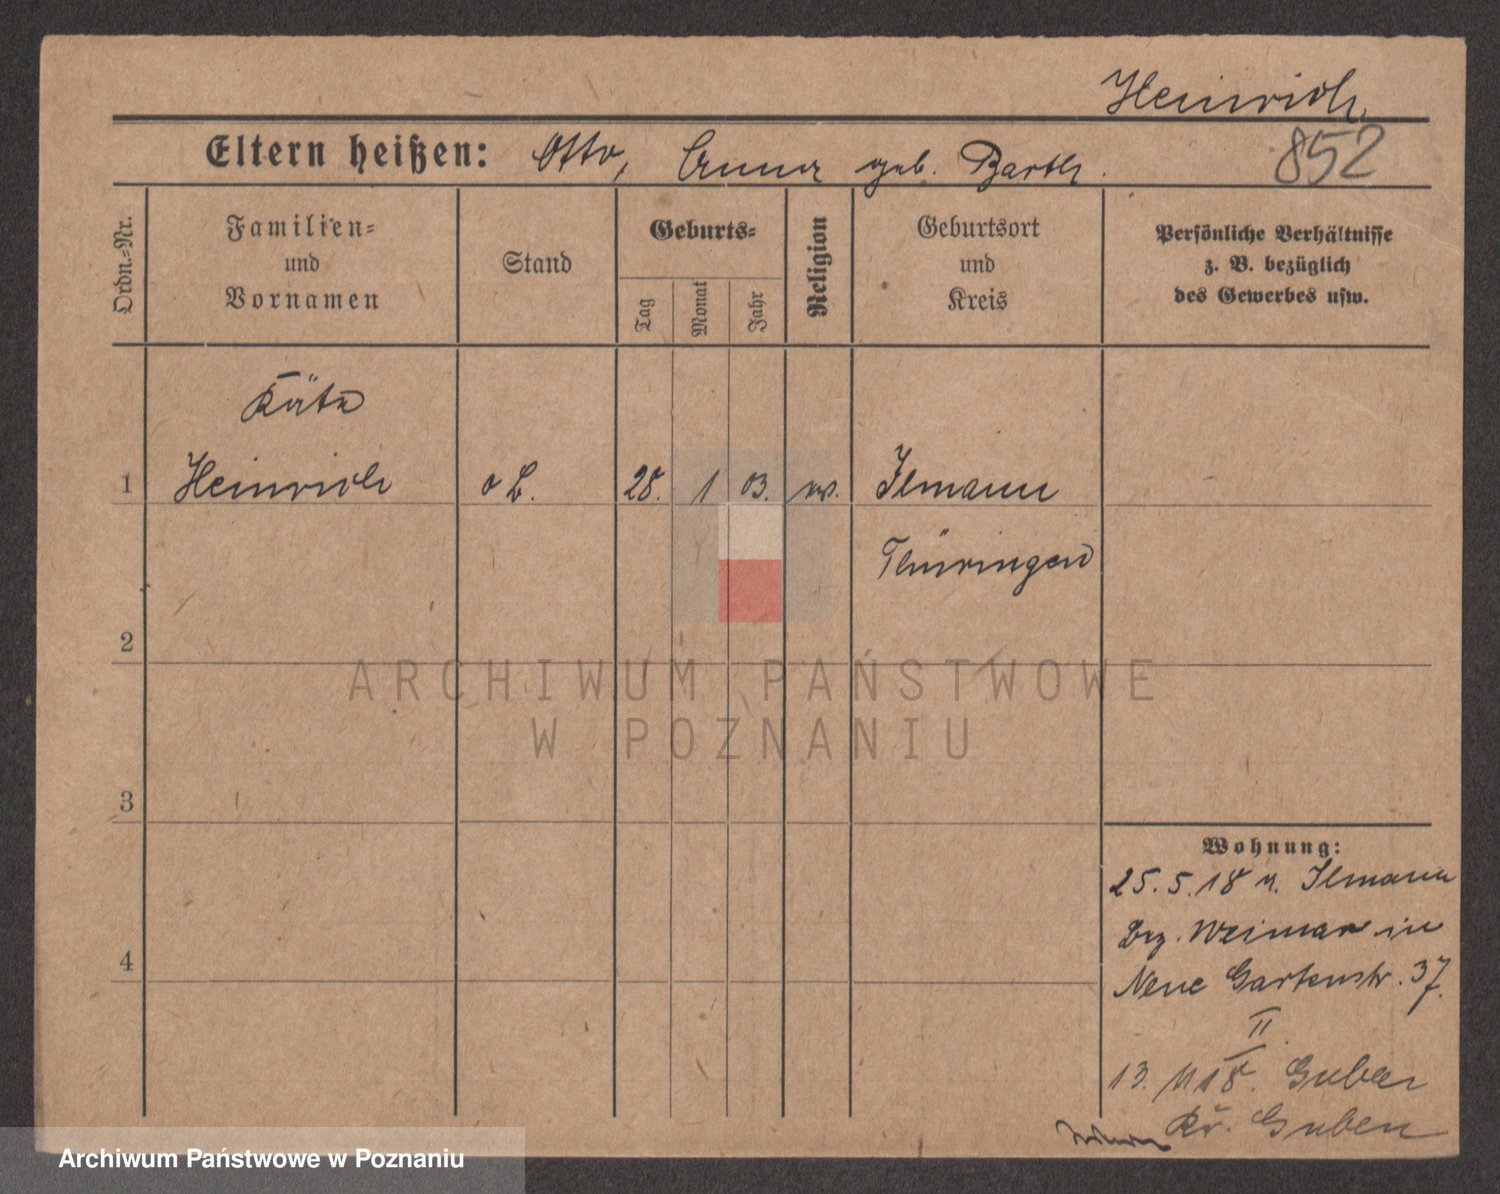 Heinrich
Eltern heißen: Otto, Anna geb. Barth.
852
Ordn.-Nr.
Familien=
und
Vornamen
Stand
Geburts=
Tag
Monat
Jahr
Religion
Geburtsort
und
Kreis
Persönliche Verhältnisse
z. B. bezüglich
des Gewerbes usw.
Käte
1 Heinrich o B. 28. 1 03. ev. Ilmann
Thüringen
2
3
4
ARCHIWUM PAŃSTWOWE
W POZNANIU
Wohnung:
25.5.18 v. Ilmann
Bez. Weimar in
Neue Gartenstr. 37.
II
13. 11 18. Guben
Kr. Guben
Archiwum Państwowe w Poznaniu